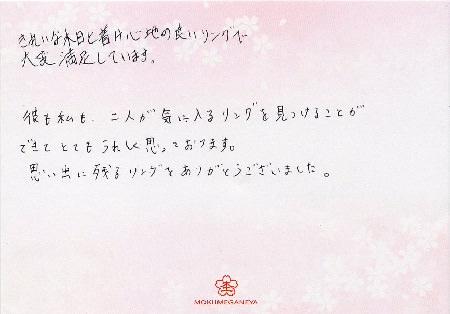 きれいな木目と着け心地の良いリングで
大変満足しています。
彼も私も、二人が気に入るリングを見つけることが
できてとてもうれしく思っております。
思い出に残るリングをありがとうございました。
MOKUMEGANEYA